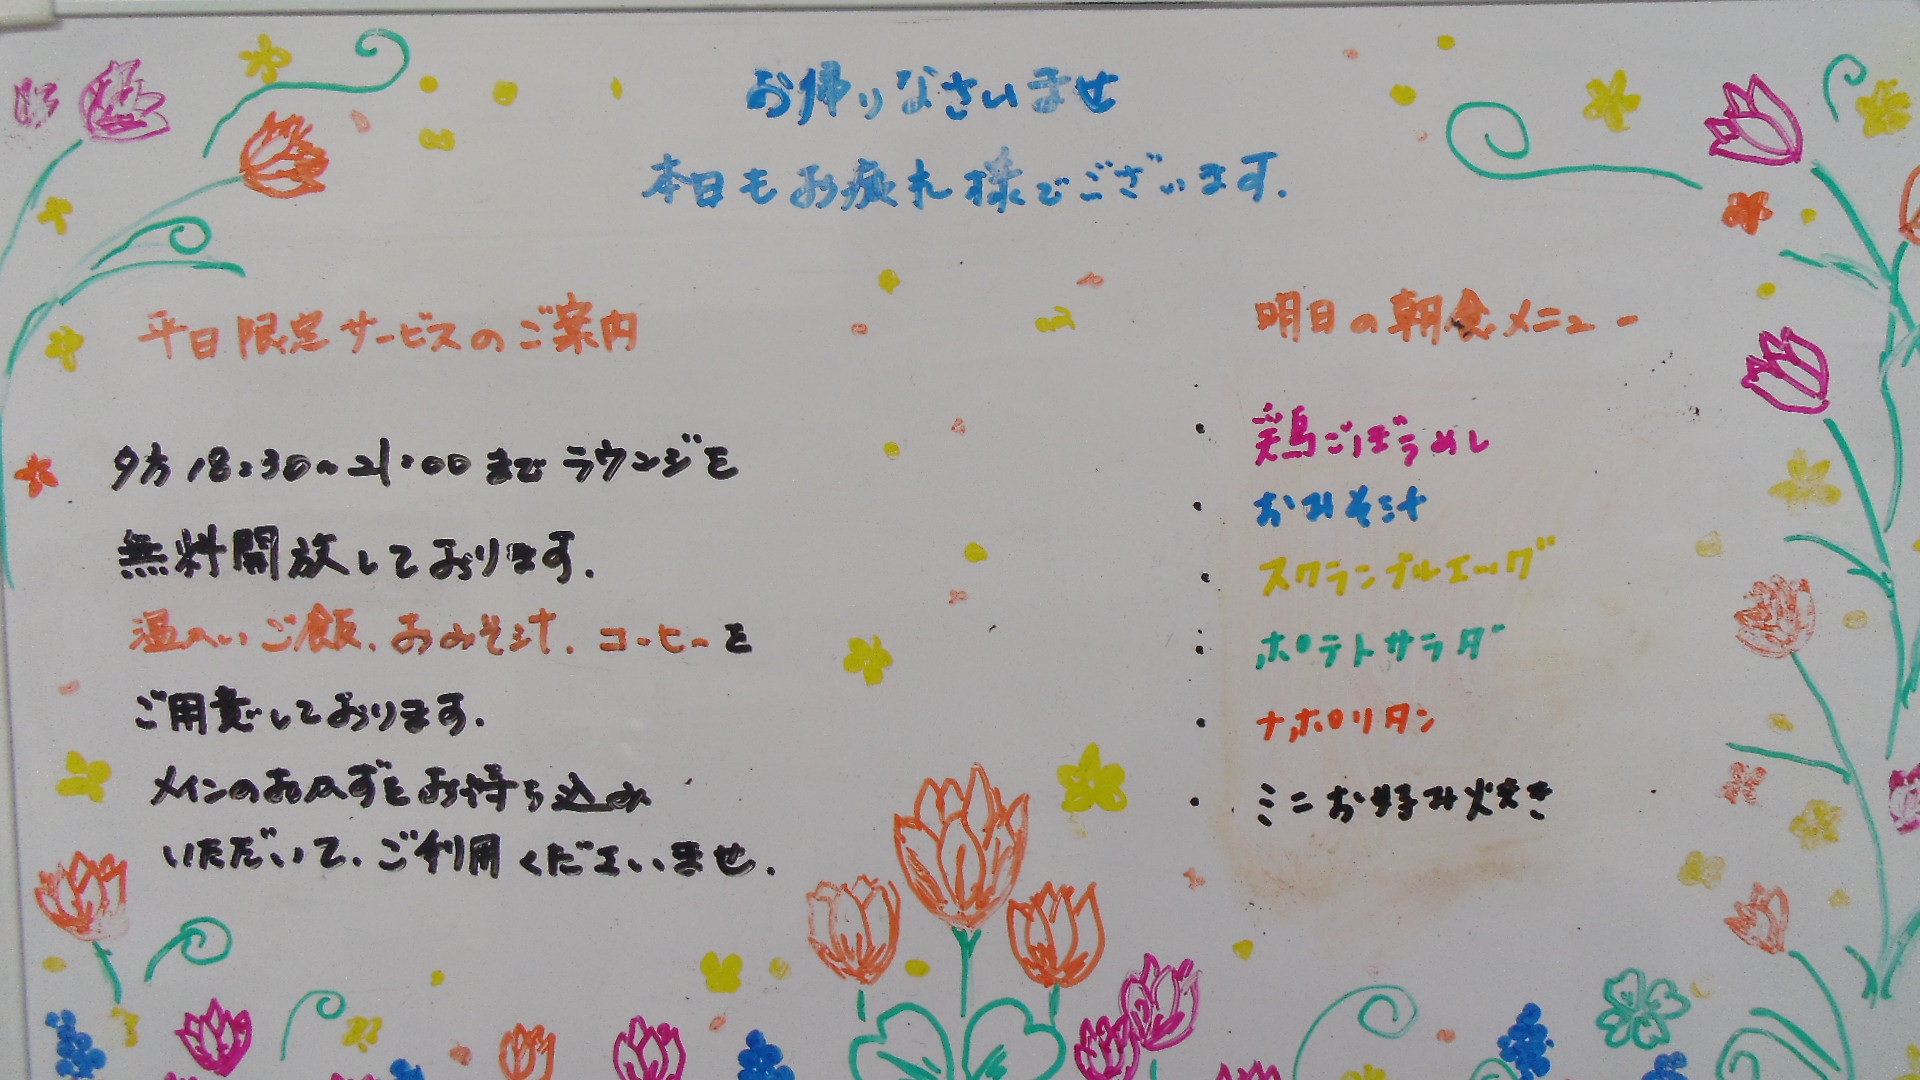 お帰りなさいませ
本日もお疲れ様でございます.
平日限定サービスのご案内
夕方18:30~21:00までラウンジを
無料開放しております.
温かいご飯、おみそ汁、コーヒーを
ご用意しております.
メインのおかずをお持ち込み
いただいて、ご利用くださいませ.
明日の朝食メニュー
・鶏ごぼうめし
・おみそ汁
・スクランブルエッグ
・ポテトサラダ
・ナポリタン
・ミニお好み焼き